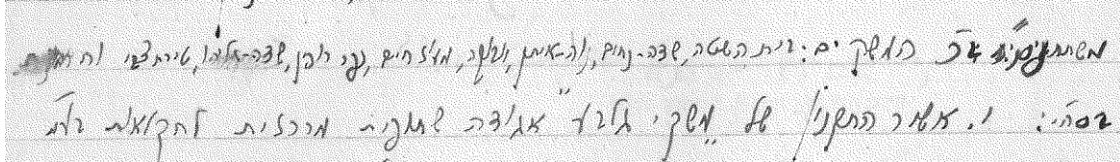 משתתפים: כל המשקים: בית השטה, שדה-נחום, נוה-איתן, מעוז חיים, כפר רופין, שדה-אליהו, טירת צבי
בסה"י: 1. אשור התקנון של "משקי גלבע" אגודה שתופית מרכזית לחקלאות בע"מ